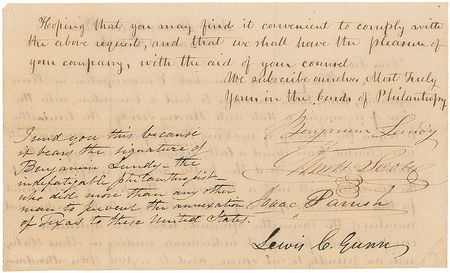 Hoping that you may find it convenient to comply with
the above request, and that we shall have the pleasure of
your company, with the aid of your counsel
We subscribe ourselves, Most truly
Yours in the bonds of Philanthropy
Benjamin Lundy
Isaac Parrish
Lewis C. Gunn
I send you this because
it bears the signature of
Benjamin Lundy - the
indefatigable philanthropist
who did more than any other
man to prevent the annexation
of Texas to these United States.